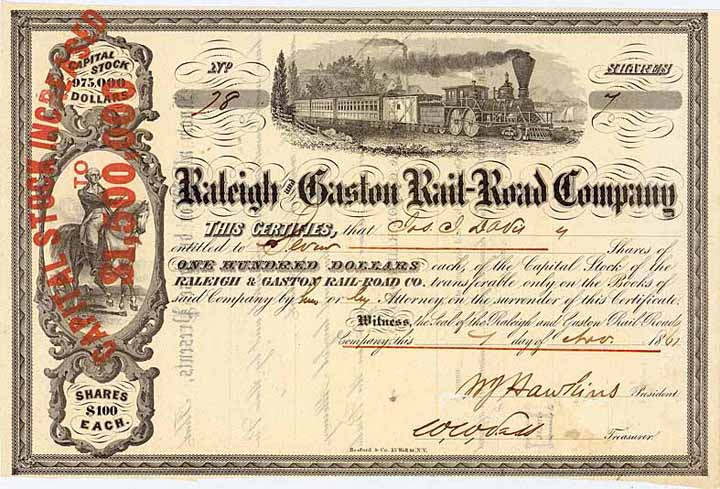 CAPITAL
STOCK
$975,000
DOLLARS
CAPITAL STOCK INCREASED
TO
SHARES
$100
EACH.
No
28
SHARES
7
Raleigh and Gaston Rail-Road Company
THIS CERTIFIES, that Jos. J. Davis is
entitled to Seven Shares of
ONE HUNDRED DOLLARS each, of the Capital Stock of the
RALEIGH & GASTON RAIL-ROAD CO. transferable only on the Books of
said Company by him or by Attorney on the surrender of this Certificate.
Witness, the Seal of the Raleigh and Gaston Rail-Road
Company, this 7 day of Nov. 1861
WJ Hawkins President
W.W. Vass
Treasurer.